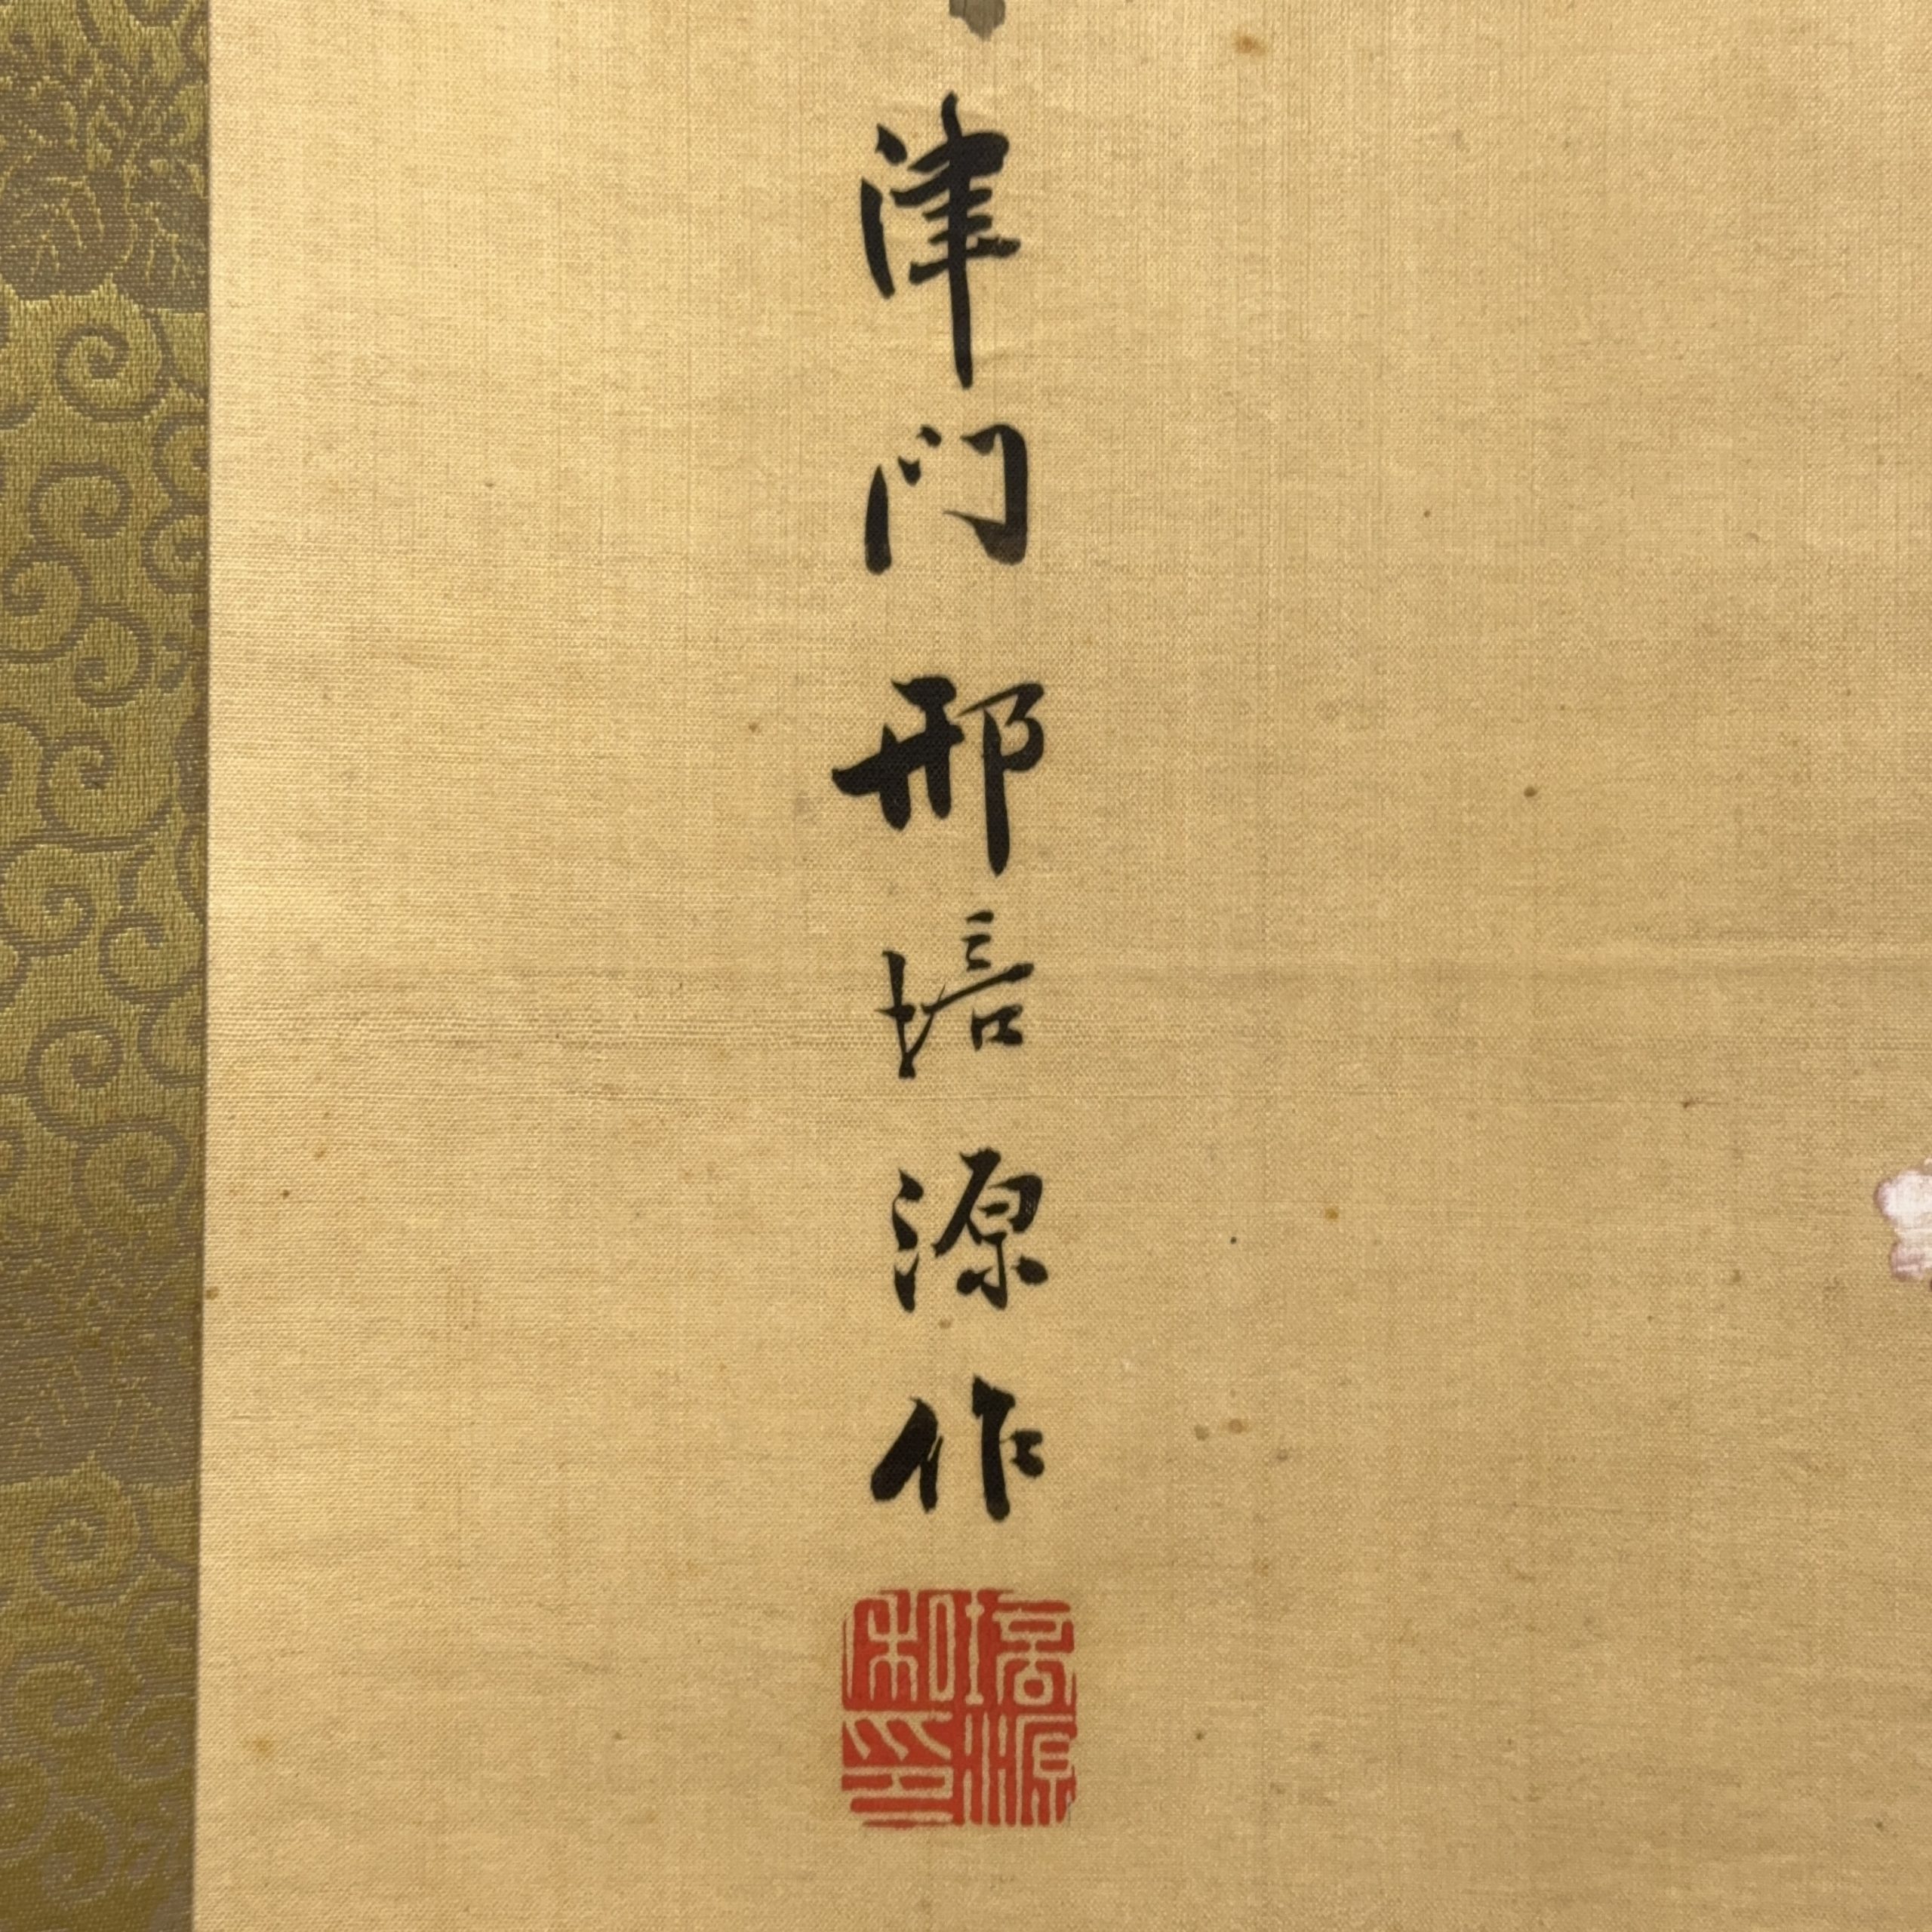 津门邢培源作
培源
私印